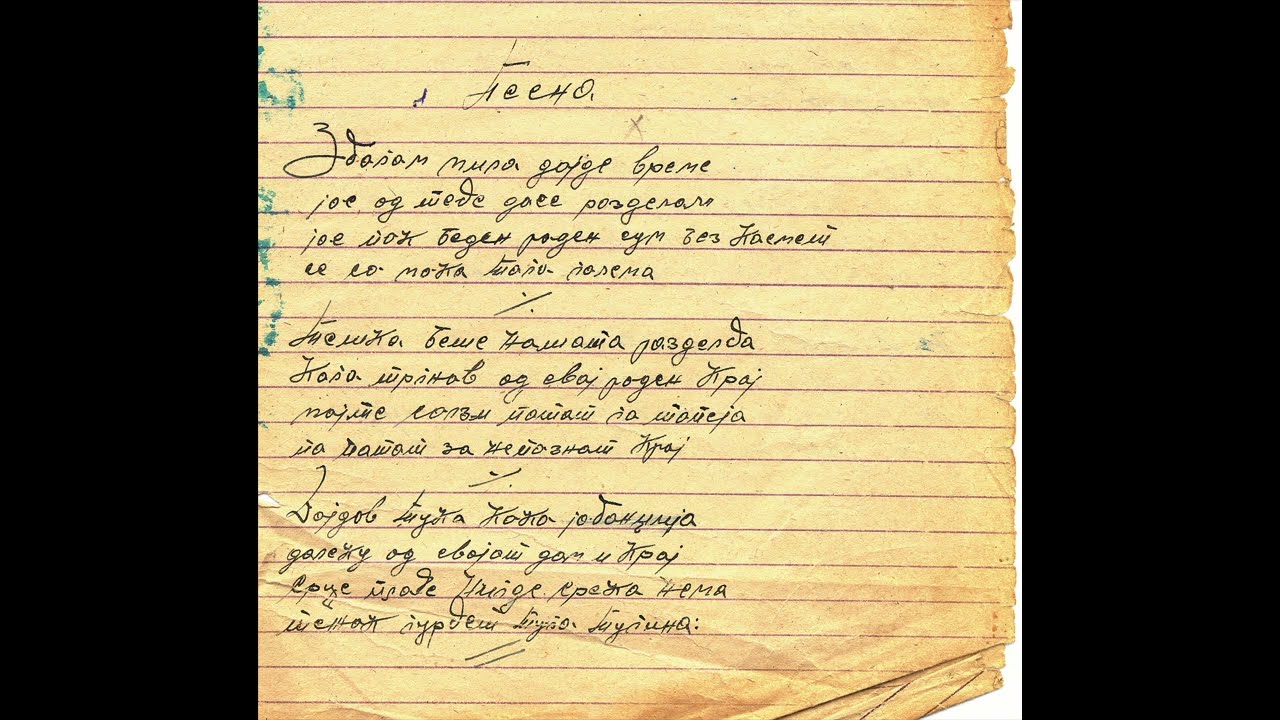 Песна.
Збогам мила дојде време
јас од тебе дасе разделам
јас пак беден роден сум без Касмет
се со мока тага голема
Тешка беше нашата разделба
Кога тргнав од свој роден Крај
мојте солзи патат га топеја
па патат за непознат Крај
Дојдов тука Како јабанџија
далеку од својат дом и Крај
срце младе Нигде среќа нема
тежак гурбет туга Тугина: